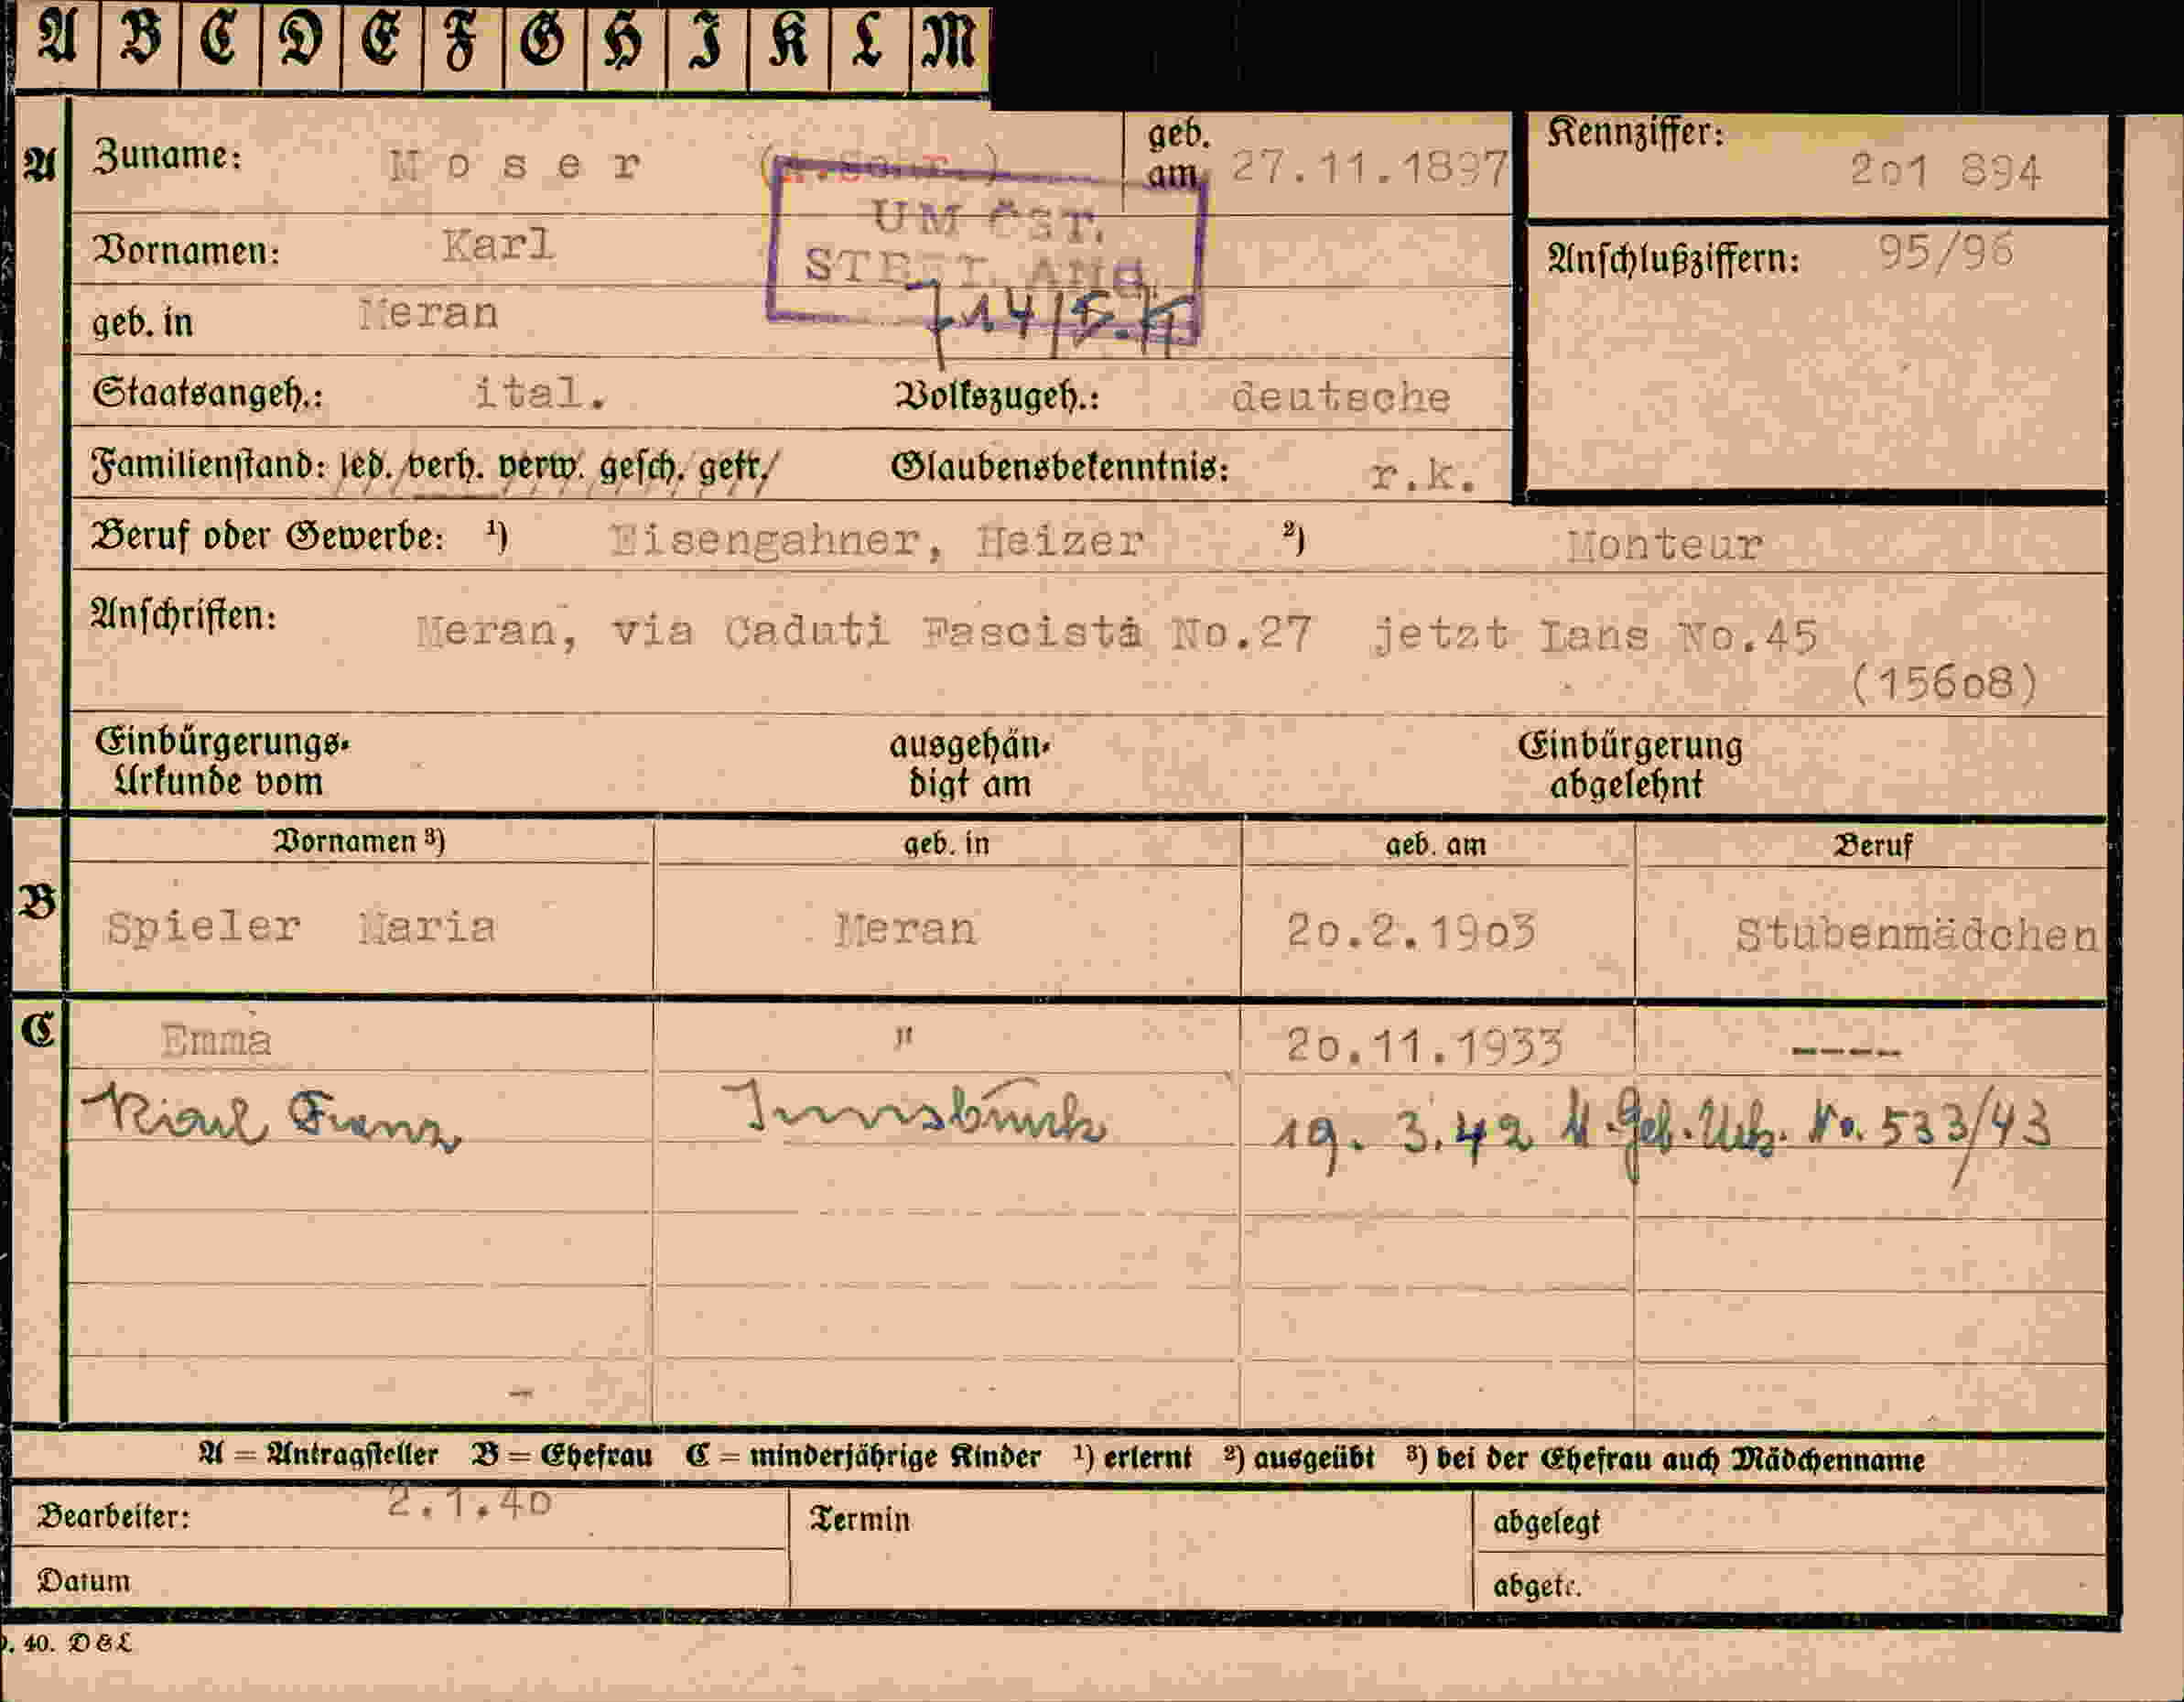 A B C D E F G H I K L M
A Zuname: Moser geb. am 27.11.1897 Kennziffer: 201 894
UM ÖST.
Vornamen: Karl Anschlußziffern: 95/96
geb. in Meran
Staatsangeh.: ital. Volkszugeh.: deutsche
Familienstand: led. verh. verw. gesch. getr. Glaubensbekenntnis: r.k.
Beruf oder Gewerbe: 1) Eisengahner, Heizer 2) Monteur
Anschriften: Meran, via Caduti Fascista No.27 jetzt Ians No.45
(15608)
Einbürgerungs- ausgehän- Einbürgerung
Urkunde vom digt am abgelehnt
Vornamen 3) geb. in geb. am Beruf
B Spieler Maria Meran 20.2.1903 Stubenmädchen
C Emma " 20.11.1933 ----
Karl Franz Innsbruck 19. 3.42 Geb. Urk. No. 533/43
A = Antragsteller B = Ehefrau C = minderjährige Kinder 1) erlernt 2) ausgeübt 3) bei der Ehefrau auch Mädchenname
Bearbeiter: 2.1.40 Termin abgelegt
Datum abgetr.
40. D & L